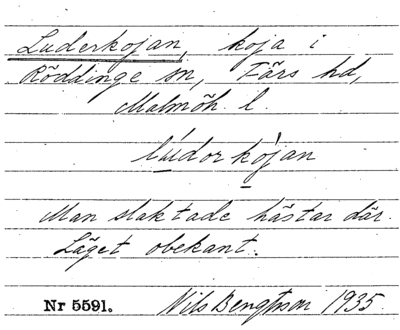 Luderkojan, koja i
Röddinge sn, Färs hd,
Malmöh. l.
lúdorkòjan
Man slaktade hästar där.
Läget obekant.
Nr 5591. Nils Bengtsson 1935.